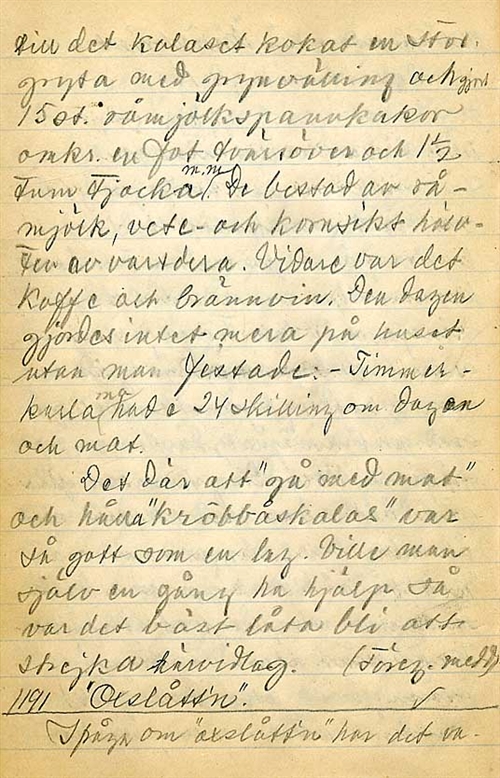 till det kalaset kokat en stor-
gryta med grynvälling och gjort
15 st. råmjölkspannkakor
omkr. en fot tvärsöver och 1 1/2
tum tjocka m.m. De bestod av rå-
mjölk, vete- och kornsikt hälv-
ten av vartdera. Vidare var det
kaffe och brännvin. Den dagen
gjordes intet mera på huset
utan man festade. - Timmer-
karlarna hade 24 skilling om dagen
och mat.
Det där att "gå med mat"
och hålla "kröbbåskalas" var
så gott som en lag. Ville man
själv en gång ha hjälp så
var det bäst låta bli att
strejka härvidlag. (Föreg. medd)
1191 "Oxslått'n". ✓
I fråga om "oxslått'n" har det va-